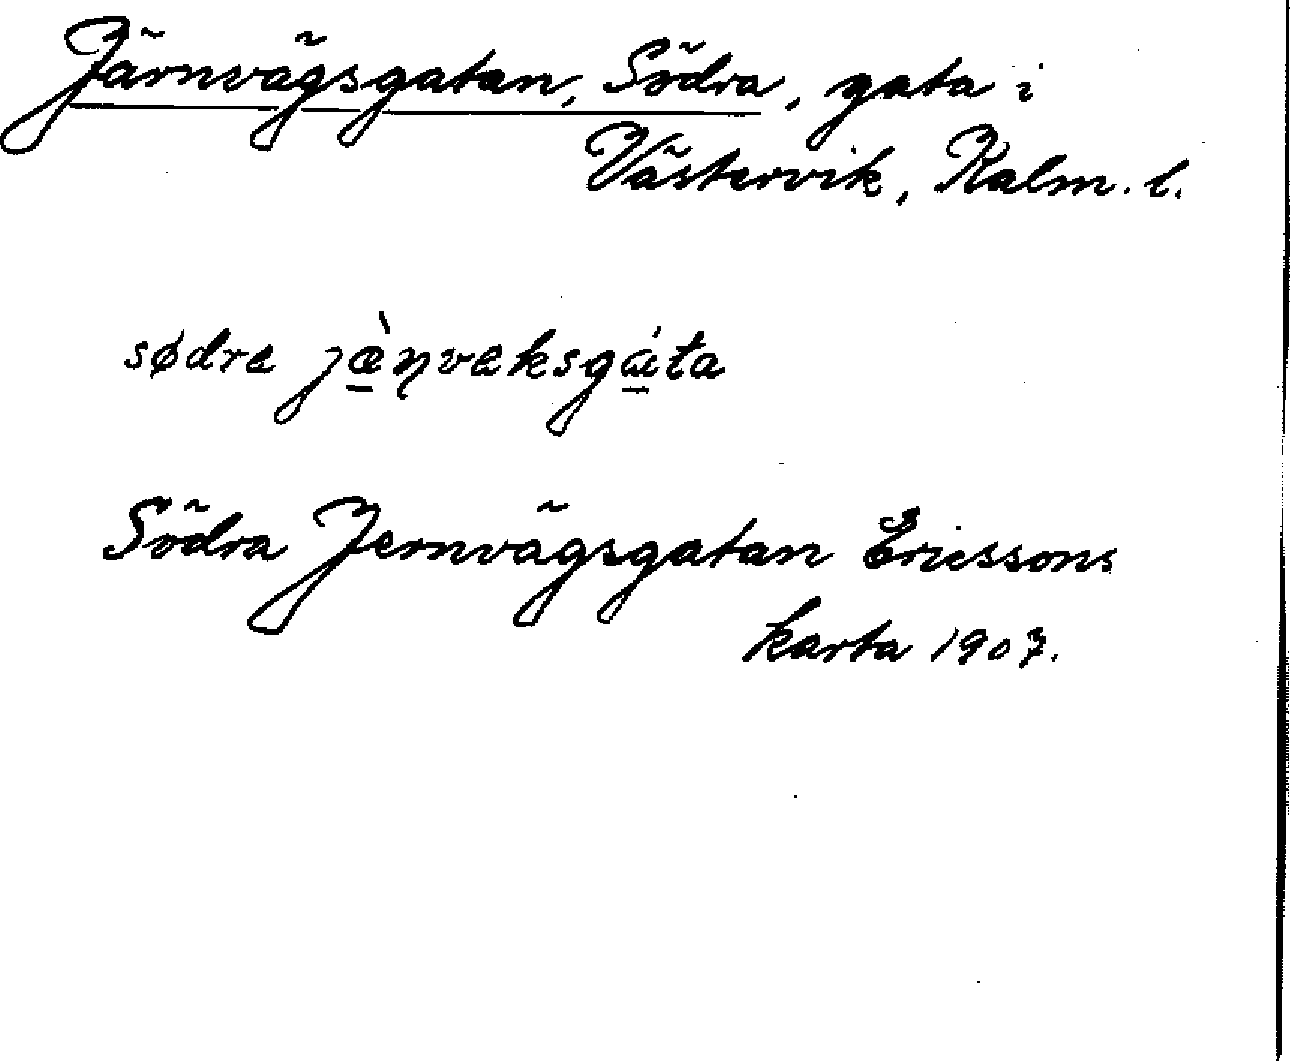 Järnvägsgatan, Södra, gata i
Västervik, Kalm. l.
sødra jæ̠̀ɳvaksgɑ̠́ta
Södra Jernvägsgatan Ericssons
karta 1907.